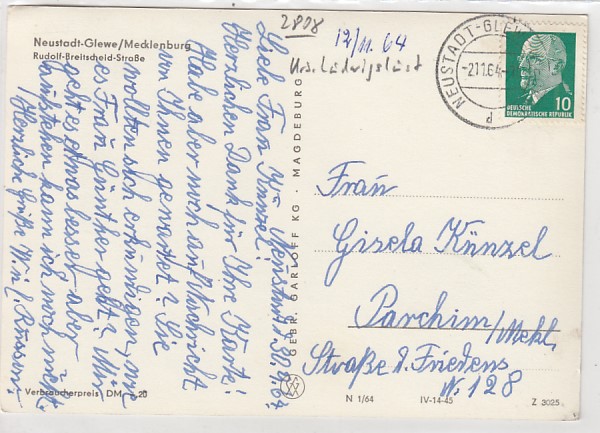 Neustadt-Glewe/Mecklenburg
Rudolf-Breitscheid-Straße
2808
12/11. 64
Krs. Ludwigslust
NEUSTADT-GLEWE
-2.11.64-
d
DEUTSCHE
DEMOKRATISCHE REPUBLIK
10
Liebe Frau Künzel!
Herzlichen Dank für Ihre Karte!
Habe aber noch auf Nachricht
von Ihnen gewartet? Sie
wollten sich erkundigen, wie
es Frau Günther geht? Mir
geht es etwas besser, aber
aufstehen kann ich noch nicht.
Herzliche Grüße
GEBR. GARLOFF KG · MAGDEBURG
Frau
Gisela Künzel
Parchim/Mekl.
Straße d. Friedens
Nr. 128
Verbraucherpreis DM -,20
N 1/64
IV-14-45
Z 3025